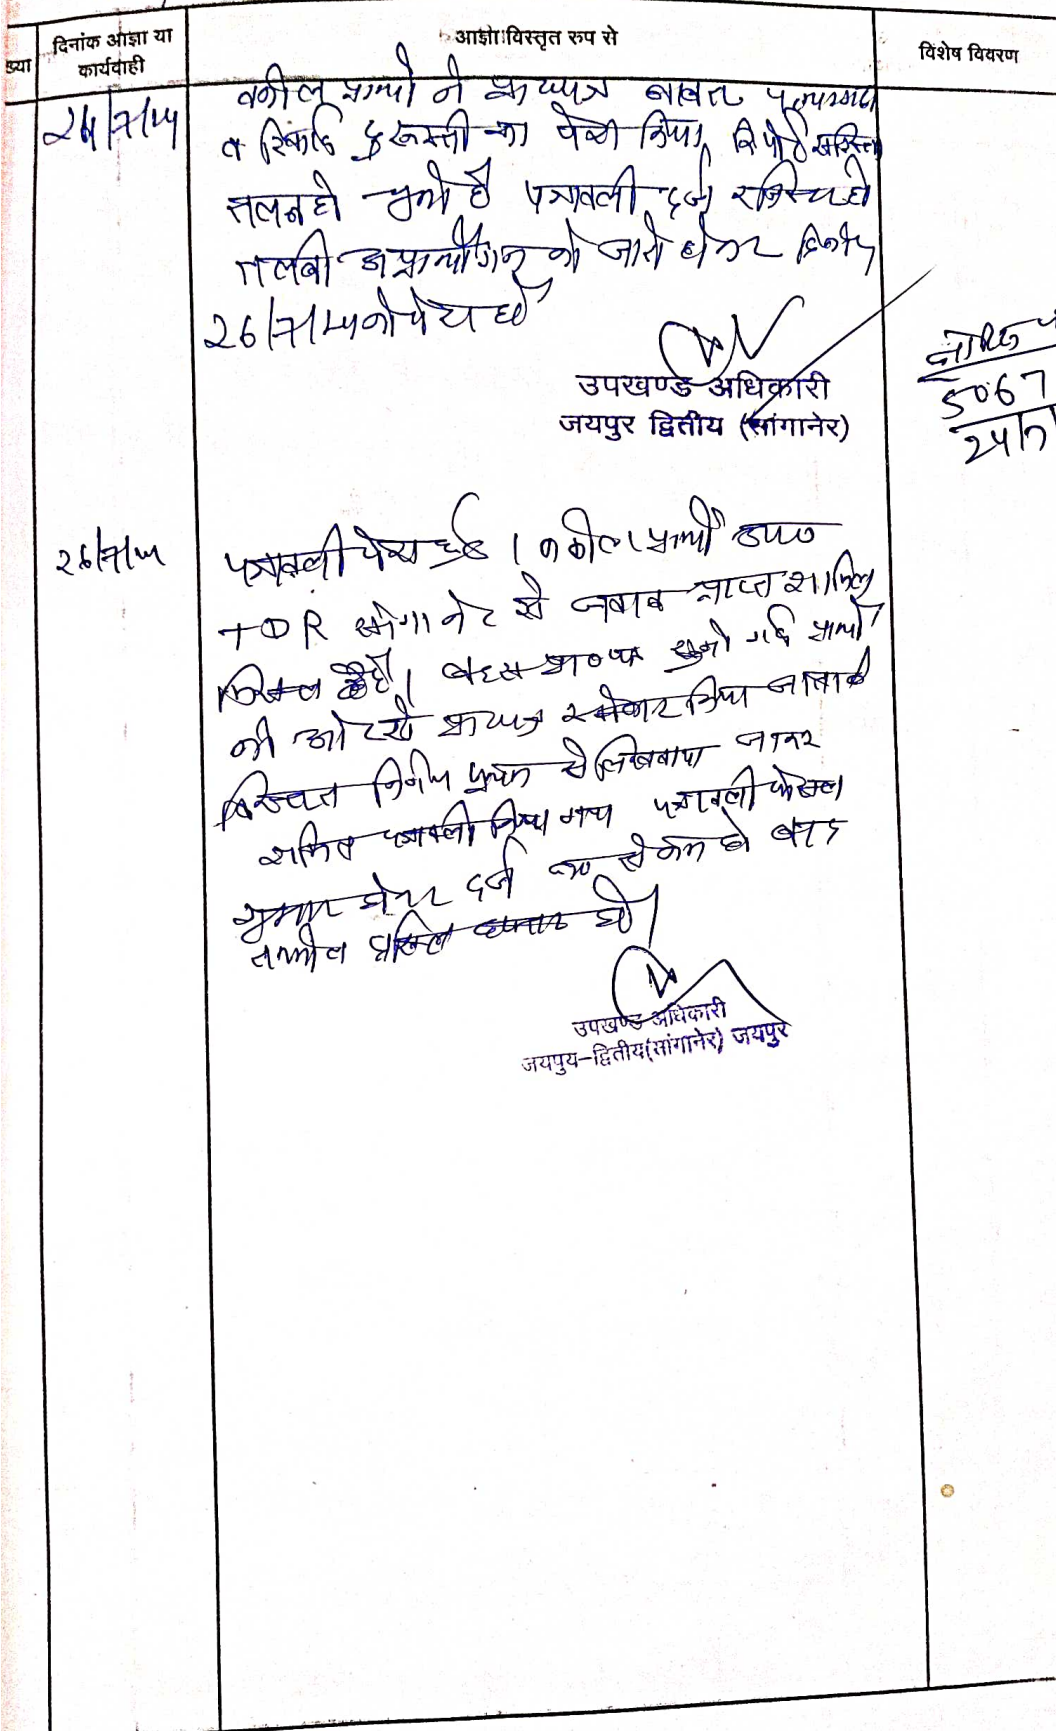 दिनांक आज्ञा या
कार्यवाही
आज्ञा विस्तृत रुप से
विशेष विवरण
ख्या
वकील प्रार्थी ने प्रा०पत्र बाबत
व रिकॉर्ड दुरूस्ती का पेश किया, रिपोर्ट
हो चुकी है पत्रावली दर्ज रजि० हो
तलबी अप्रार्थीगण की जारी होकर दिनांक
26/7/ को पेश हो
उपखण्ड अधिकारी
जयपुर द्वितीय (सांगानेर)
5067
24/7
26/7/
पत्रावली पेश हुई। वकील प्रार्थी उप०
TDR सांगानेर से जवाब प्राप्त शामिल
मिसल है। बहस सुनी गई प्रार्थी
की ओर से प्रा०पत्र स्वीकार किया जाता है
विस्तृत निर्णय पृथक से लिखवाया जाकर
शामिल पत्रावली किया गया पत्रावली फैसल
शुमार होकर दर्ज से कम हो बाद
तकमील दाखिल हो।
उपखण्ड अधिकारी
जयपुय-द्वितीय(सांगानेर) जयपुर